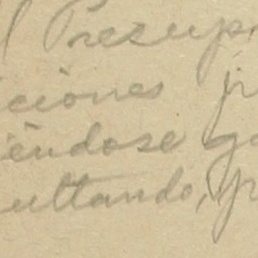 l Presup
ciones
iéndose ga
ultando, p